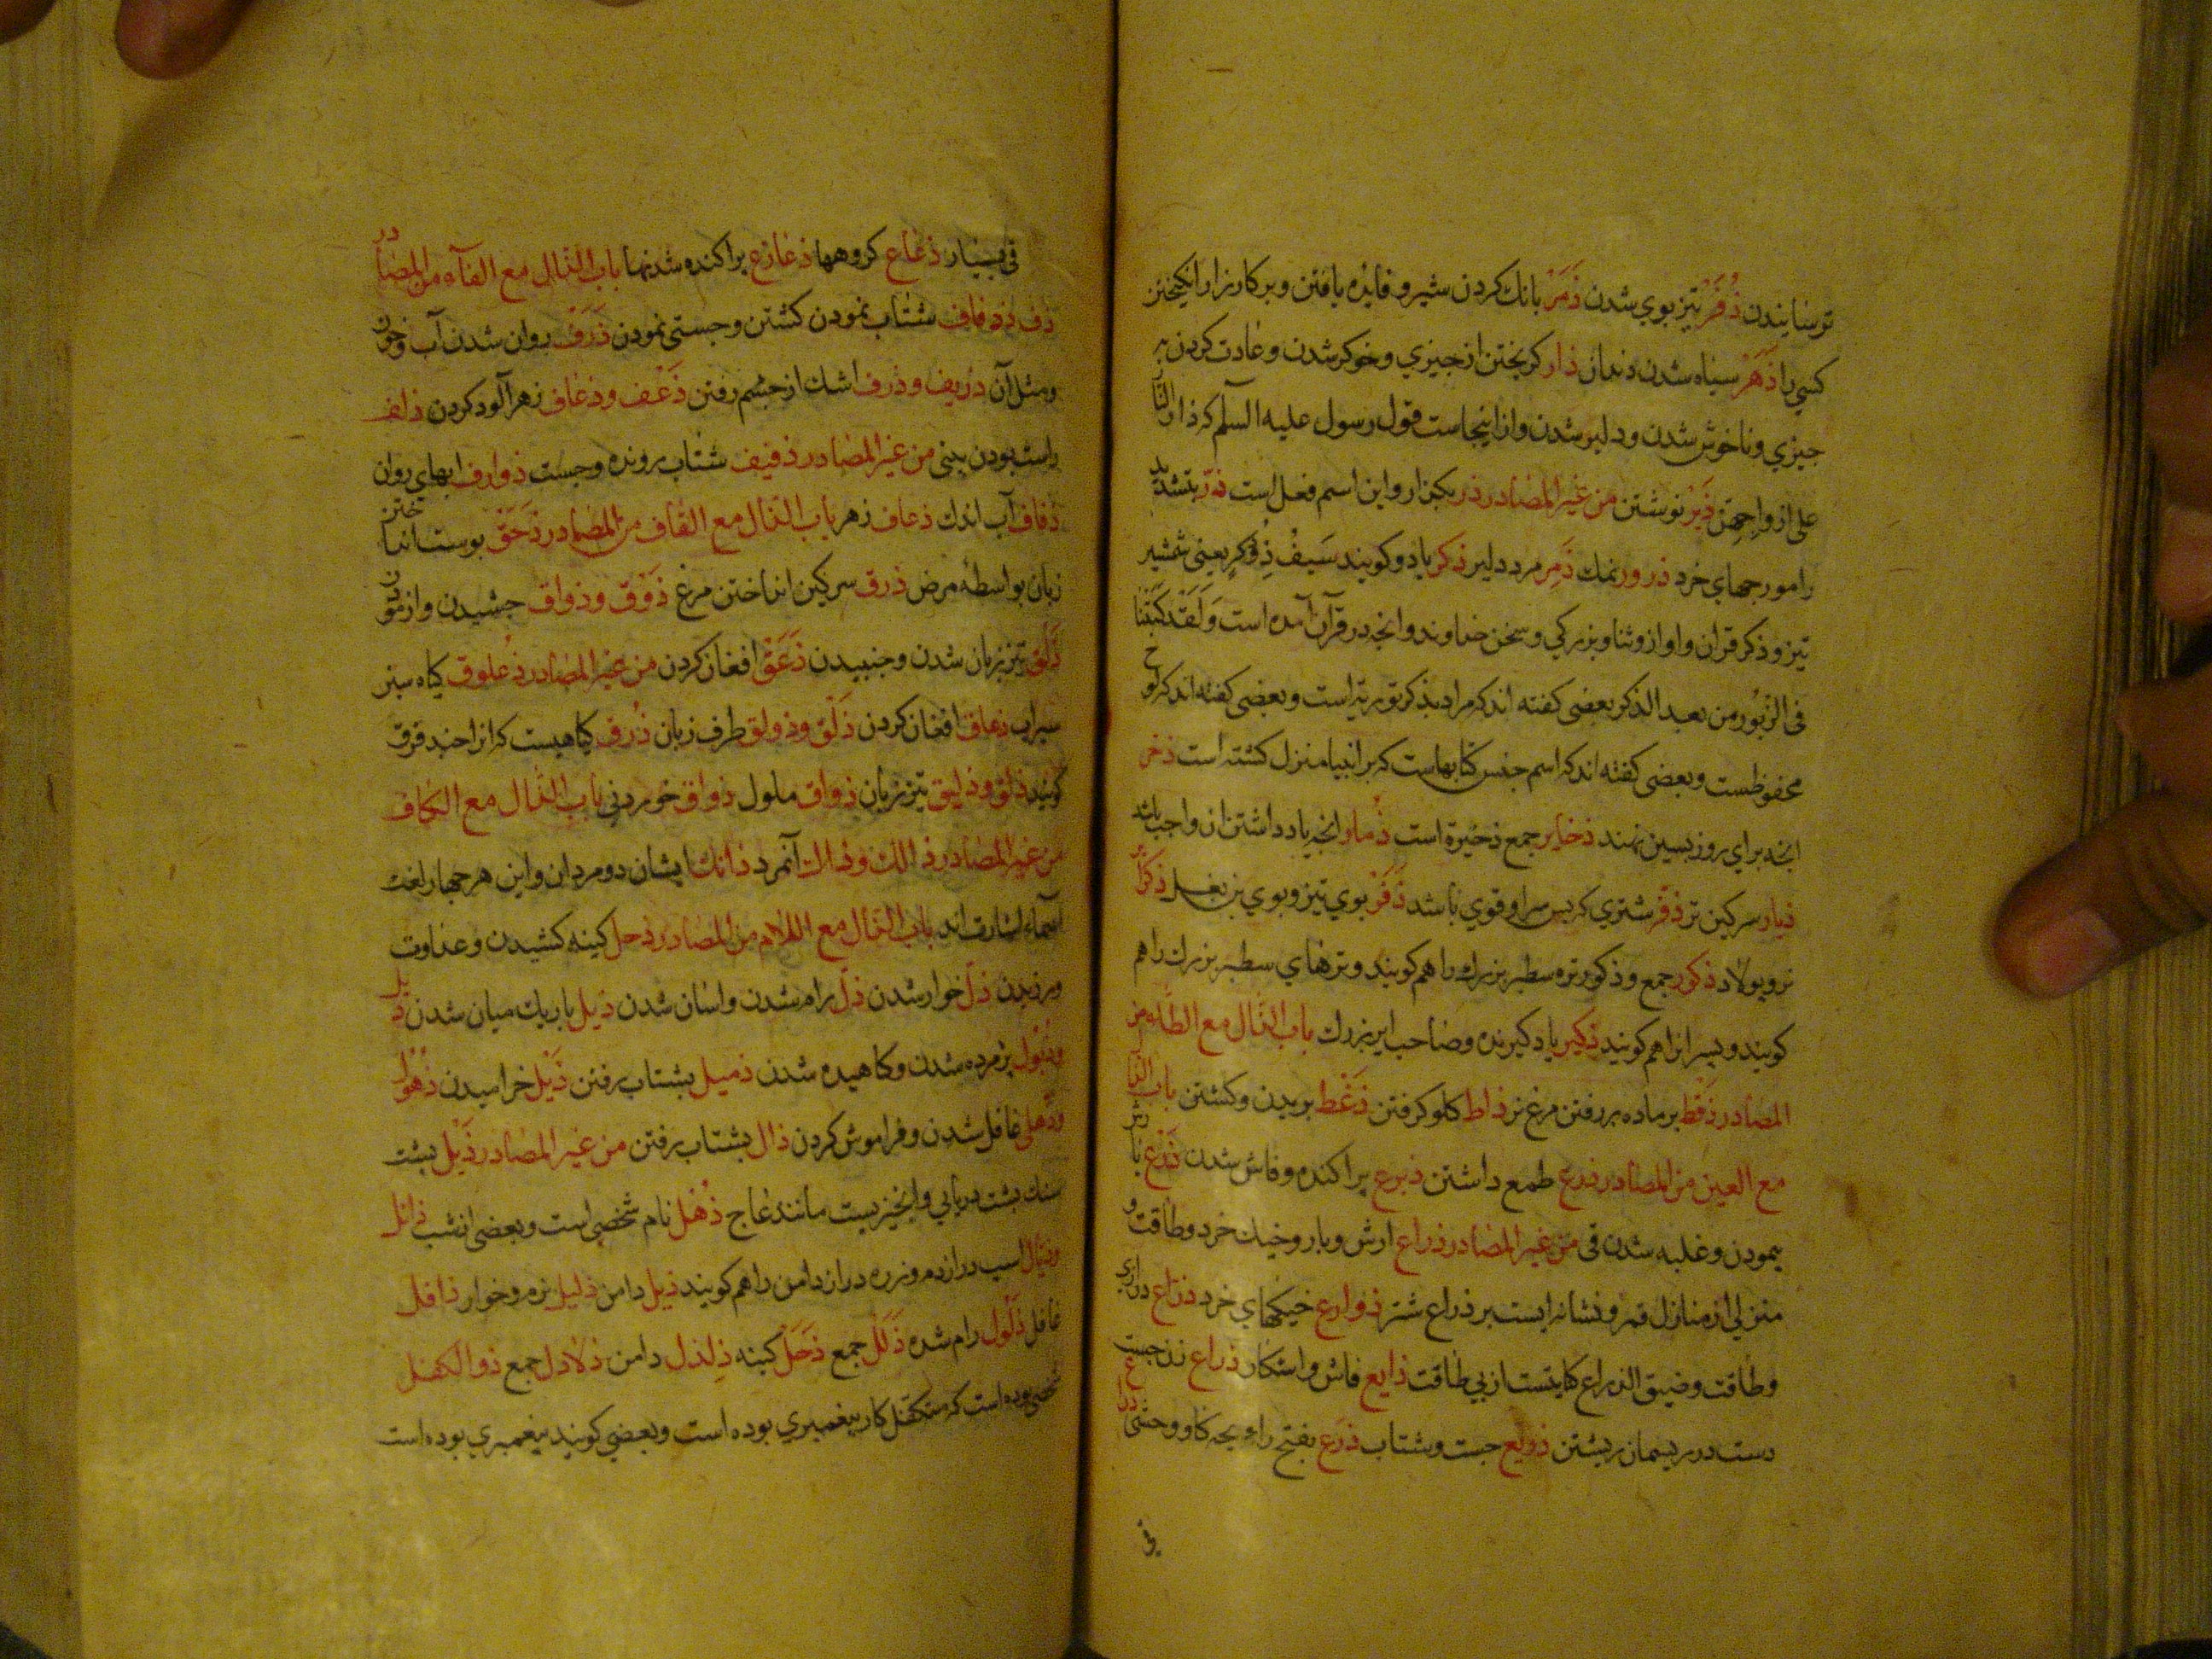 ترسانیدن ذُفَرْ تیز بوی شدن ذَمَرْ بانك کردن شیر و فایده یافتن و بر کارزار انکیختن
کسی را ذَهَرْ سیاه شدن دندان ذار کریختن از جیزي و خوکر شدن و عادت کردن بر
جیزي و ناخوش شدن و دلیر شدن و از اینجاست قول رسول علیه السلم که ذار النسا
علی ازواجهن ذَبْر نوشتن من غیر المصادر ذر بکذار و این اسم فعل است ذرّ بتشدید
را مورجهاي خرد ذرور نمك ذَمِر مرد دلیر ذکر یاد و کویند سَیفٌ ذِوُکرٍ یعنی شمشیر
تیز و ذکر قران و اواز و ثنا و بزرکي و سخن خداوند و انجه در قرآن آمده است وَلَقَد کَتَبْنا
فی الزّبُور من بعد الذکر بعضی کفته اند که مراد بذکر توریة است و بعضی کفته اند که لوح
محفوظست و بعضی کفته اند که اسم جنس کتابهاست که بر انبیا منزل کشته است ذخر
انجه براي روز بسین نهند ذخایر جمع ذخیرة است ذمار انجه یاد داشتن ان واجب باشد
ذیار سرکین تر ذفر شتري که بس سر او قوي باشد ذَفَرْ بوي تیز و بوي بن بغل ذکر
نر و بولاد ذکور جمع و ذکور تره سطبر بزرك را هم کویند و ترهاي سطبر بزرك را هم
کویند و بسر انرا هم کویند ذکیر یاد کیرنده و صاحب ایر بزرك باب الذال مع الطاء من
المصادر ذَقط بر ماده بر رفتن مرغ نر ذاط کلو کرفتن ذَعْط بریدن و کشتن باب الذال
مع العین من المصادر ذرع طمع داشتن ذیوع پراکنده و فاش شدن ذَرْع بارش
بیمودن و غلبه شدن قی من غیر المصادر ذراع ارش و بازو و خیك خرد و طاقت و
منزلی از منازل قمر و نشانه ایست بر ذراع شتر ذوارع خیکهاي خرد ذراع درازي
و طاقت و ضیق الذراع کنایتست از بي طاقت ذایع فاش و اشکار ذراع زن جست
دست در ریسمان ریشتن ذریع جست و شتاب ذرَع بفتح راء بجه کاو وحشی ذراع
فی
فی بسیار ذعاع کروهها ذعاذع پراکنده شدنها باب الذال مع الفآء من المصادر
ذف ذذفاف شتاب نمودن کشتن و جستی نمودن ذَرَفْ روان شدن آب و خون
و مثل آن ذریف و ذرف اشك از جشم رفتن ذَعْف و ذعاف زهر آلود کردن ذلف
راست بودن بینی من غیر المصادر ذفیف شتاب رونده و جست ذوارف ابهاي روان
ذفاف آب اندك ذعاف زهر باب الذال مع القاف من المصادر ذَحَقْ بوست انداختن
زبان بواسطه مرض ذرق سرکین انداختن مرغ ذَوْق و ذواق جشیدن و ازمودن
ذَلَق تیز زبان شدن و جنبیدن ذَعَقْ افغان کردن من غیر المصادر ذعلوق کیاه سبز
سیراب ذعاق افغان کردن ذَلَق و ذولق طرف زبان ذُرَق کیاهیست که انرا حندقوق
کویند ذلق و ذلیق تیز زبان ذواق ملول ذواق خوردنی باب الذال مع الکاف
من غیر المصادر ذالك و ذاك آنمرد ذانك ایشان دو مردان و این هر جهار لغت
آسماء اشارت اند باب الذال مع اللام من المصادر ذحل کینه کشیدن و عداوت
ورزیدن ذلّ خوار شدن ذلّ رام شدن و اسان شدن ذبل باریك میان شدن ذیل
و ذبول پژمرده شدن و کاهیده شدن ذمیل بشتاب رفتن ذَیْل خرامیدن ذهُول
و ذهل غافل شدن و فراموش کردن ذال بشتاب رفتن من غیر المصادر ذَبْل بشت
سنك بشت دریایی و انجیزیست مانند عاج ذُهْل نام شخصی است و بعضی از شب ذائل
و ذیال اسب دراز دم و زره دراز دامن را هم کویند ذیل دامن ذلیل نرم و خوار ذاهل
غافل ذلول رام شده ذُلُل جمع ذَحَل کینه ذِلذل دامن ذلاذل جمع ذو الکفل
شخصی بوده است که متکفل کار بیغمبري بوده است و بعضی کویند بیغمبري بوده است